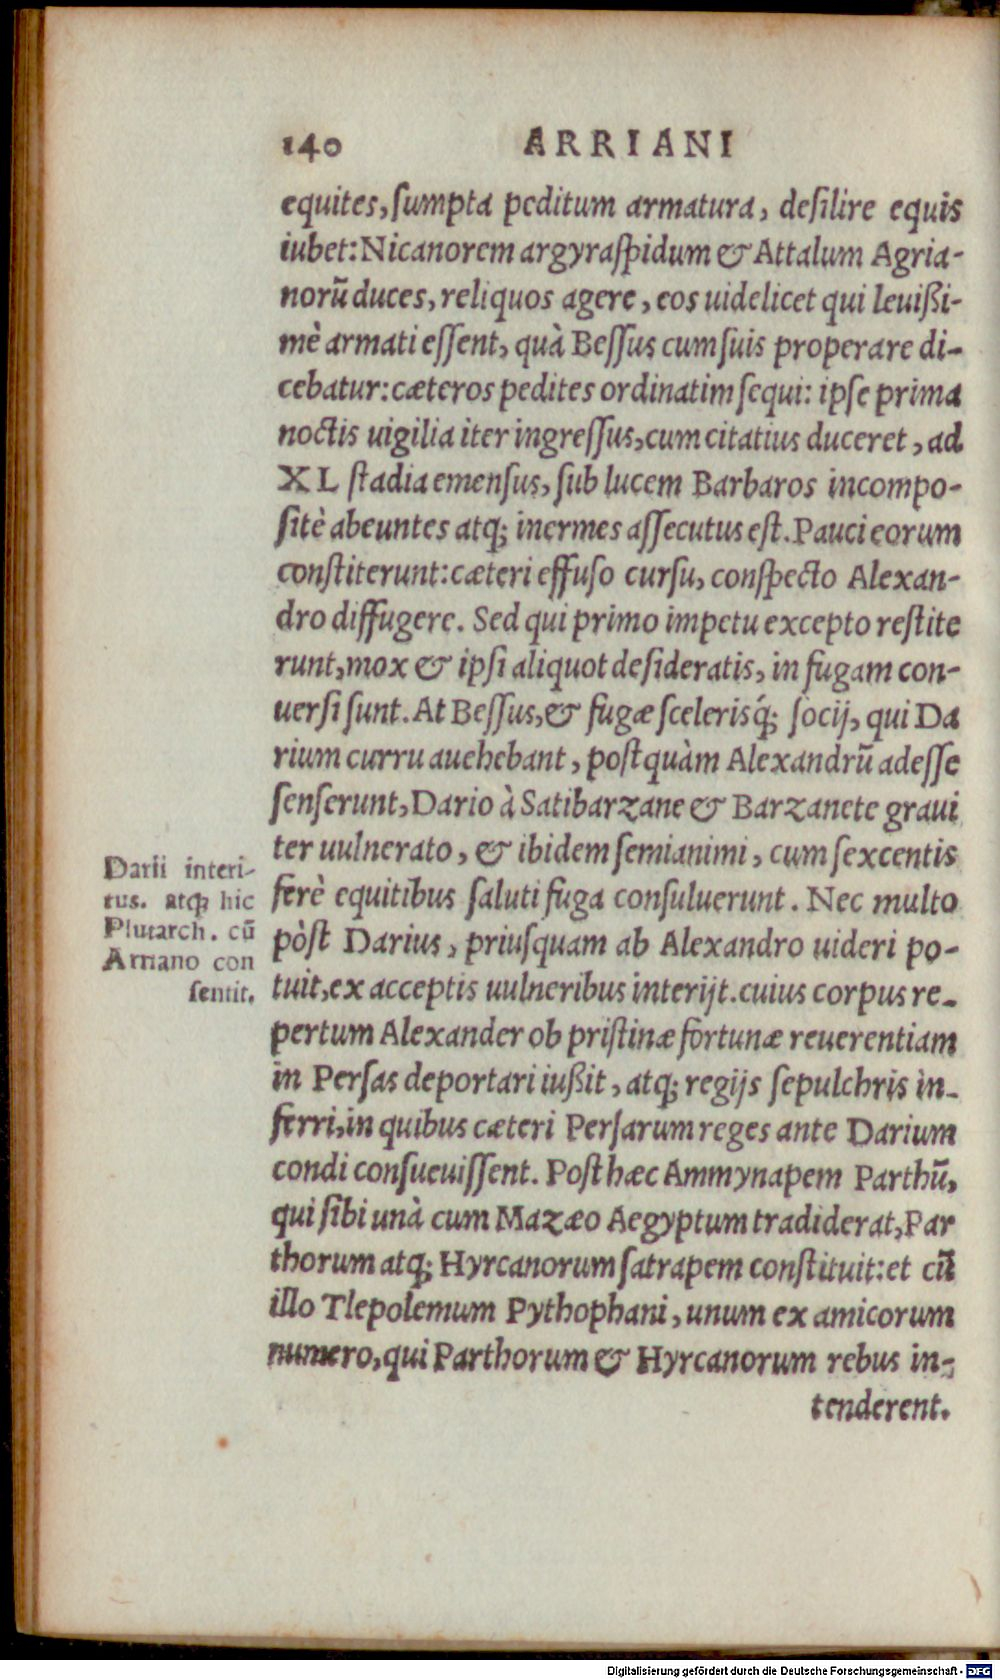 140 ARRIANI
equites, ſumpta peditum armatura, deſilire equis
iubet: Nicanorem argyraſpidum & Attalum Agria-
norũ duces, reliquos agere, eos uidelicet qui leuißi-
mè armati eſſent, quà Beſſus cum ſuis properare di-
cebatur: cæteros pedites ordinatim ſequi: ipſe prima
noctis uigilia iter ingreſſus, cum citatius duceret, ad
XL ſtadia emenſus, ſub lucem Barbaros incompo-
ſitè abeuntes atq; inermes aſſecutus eſt. Pauci eorum
conſtiterunt: cæteri effuſo curſu, conſpecto Alexan-
dro diffugere. Sed qui primo impetu excepto reſtite
runt, mox & ipſi aliquot deſideratis, in fugam con-
uerſi ſunt. At Beſſus, & fugæ ſcelerisq́; ſocij, qui Da
rium curru auehebant, poſtquàm Alexandrũ adeſſe
ſenſerunt, Dario à Satibarzane & Barzanete graui
ter uulnerato, & ibidem ſemianimi, cum ſexcentis
ferè equitibus ſaluti fuga conſuluerunt. Nec multo
pòſt Darius, priuſquam ab Alexandro uideri po-
tuit, ex acceptis uulneribus interijt. cuius corpus re-
pertum Alexander ob priſtinæ fortunæ reuerentiam
in Perſas deportari iußit, atq; regijs ſepulchris in-
ferri, in quibus cæteri Perſarum reges ante Darium
condi conſueuiſſent. Poſt hæc Ammynapem Parthũ,
qui ſibi unà cum Mazæo Aegyptum tradiderat, Par
thorum atq; Hyrcanorum ſatrapem conſtituit: et cũ
illo Tlepolemum Pythophani, unum ex amicorum
numero, qui Parthorum & Hyrcanorum rebus in-
tenderent.
Darii interi-
tus. atq; hic
Plutarch. cũ
Arriano con
ſentit.
Digitalisierung gefördert durch die Deutsche Forschungsgemeinschaft - DFG